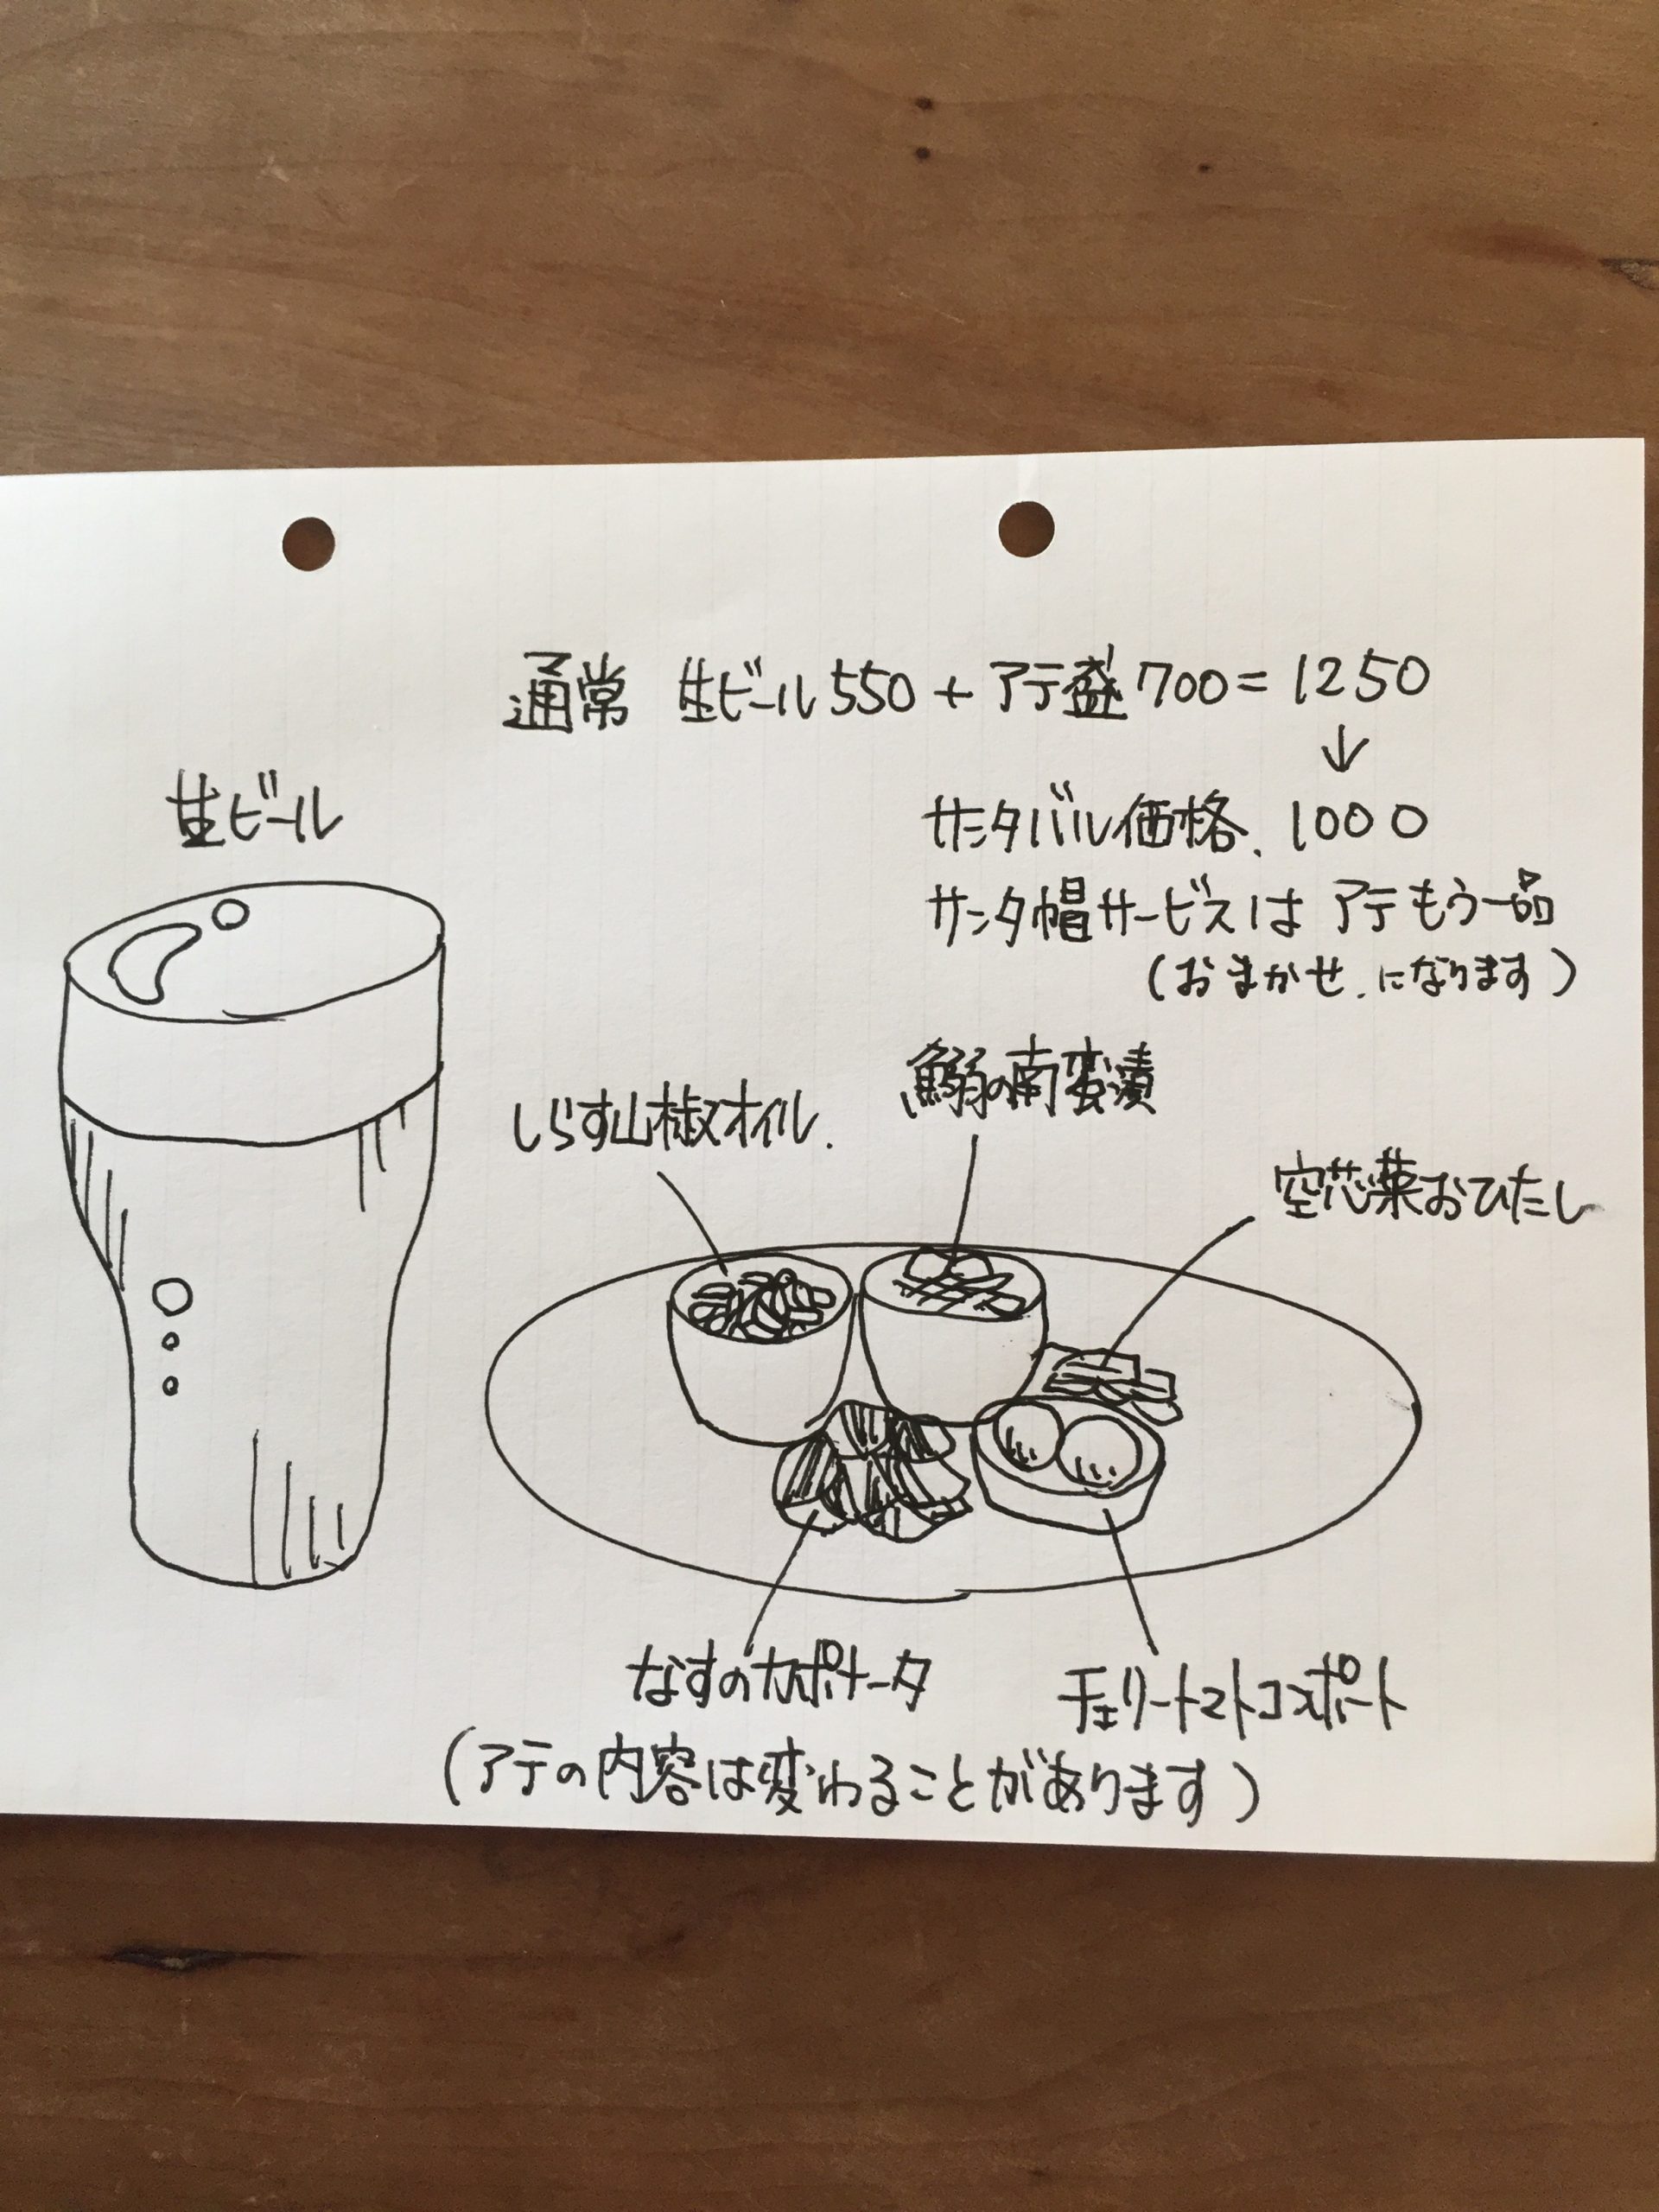 通常 生ビール550+アテ盛700=1250
↓
サンタバル価格、1000
サンタ帽サービスは アテもう一品
(おまかせ、になります)
生ビール
しらす山椒オイル、
鰯の南蛮漬
空芯菜おひたし
なすのカポナータ
チェリートマトコンポート
(アテの内容は変わることがあります)